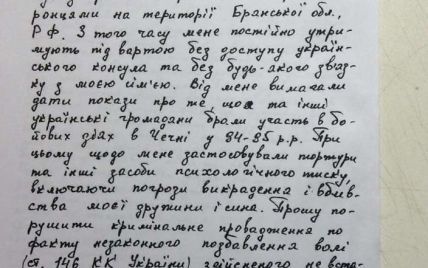 ронцями на території Брянської обл.,
РФ. З того часу мене постійно утри-
мують під вартою без доступу україн-
ського консула та без будь-якого зв'яз-
ку з моєю сім'єю. Від мене вимагали
дати покази про те, що я та інші
українські громадяни брали участь в бо-
йових діях в Чечні у 94-95 р.р. При
цьому щодо мене застосовували тортури
та інші засоби психологічного тиску,
включаючи погрози викрадення і вбив-
ства моєї дружини і сина. Прошу по-
рушити кримінальне провадження по
факту незаконного позбавлення волі
(ст. 146 КК України) здійсненого не вста-